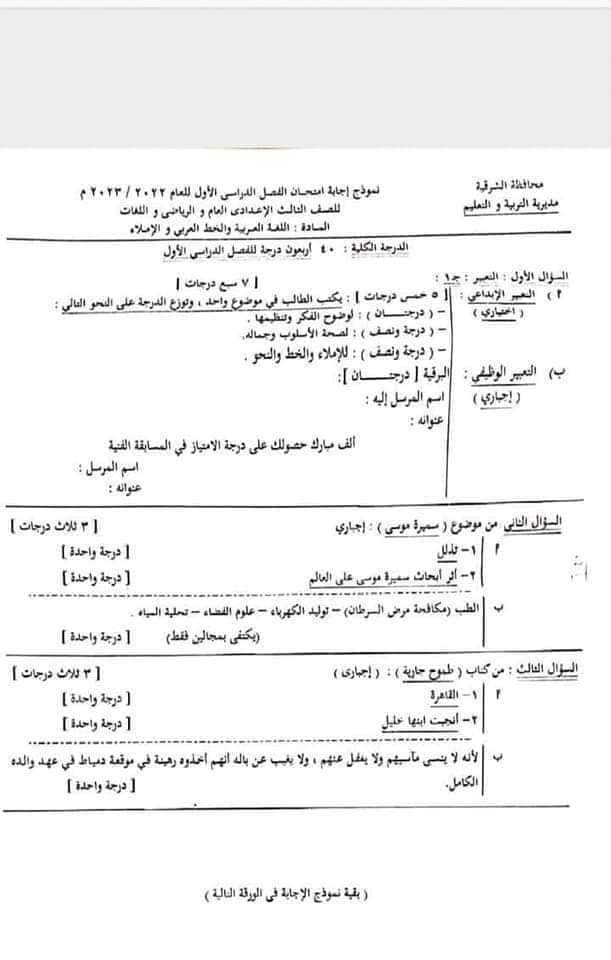 محافظة الشرقية
مديرية التربية و التعليم
نموذج إجابة امتحان الفصل الدراسى الأول للعام ٢٠٢٢ / ٢٠٢٣ م
للصف الثالث الإعدادى العام و الرياضى و اللغات
المادة : اللغة العربية والخط العربي و الإملاء
الدرجة الكلية : ٤٠ أربعون درجة للفصل الدراسى الأول
السؤال الأول : التعبير : جـ١ : [ ٧ سبع درجات ]
٢ ) التعبير الإبداعي : [ ٥ خمس درجات ] : يكتب الطالب في موضوع واحد ، وتوزع الدرجة على النحو التالي :
( اختياري ) – ( درجتــــان ) : لوضوح الفكر وتنظيمها .
– ( درجة ونصف ) : لصحة الأسلوب وجماله.
– ( درجة ونصف ) : للإملاء والخط والنحو .
ب) التعبير الوظيفي : البرقية [ درجتــــان ]:
( إجباري ) اسم المرسل إليه :
عنوانه :
ألف مبارك حصولك على درجة الامتياز في المسابقة الفنية
اسم المرسل :
عنوانه :
السؤال الثاني من موضوع ( سميرة موسى ) : إجباري [ ٣ ثلاث درجات ]
٢ ١– تذلل [ درجة واحدة ]
٢– أثر أبحاث سميرة موسى على العالم [ درجة واحدة ]
ب الطب (مكافحة مرض السرطان) – توليد الكهرباء – علوم الفضاء – تحلية المياه .
(يكتفى بمجالين فقط) [ درجة واحدة ]
السؤال الثالث : من كتاب ( طموح جارية ) : ( إجبارى ) [ ٣ ثلاث درجات ]
٢ ١– القاهرة [ درجة واحدة ]
٢– أنجبت ابنها خليل [ درجة واحدة ]
ب لأنه لا ينسى مآسيهم ولا يغفل عنهم ، ولا يغيب عن باله أنهم أخذوه رهينة في موقعة دمياط في عهد والده
الكامل. [ درجة واحدة ]
( بقية نموذج الإجابة فى الورقة التالية )